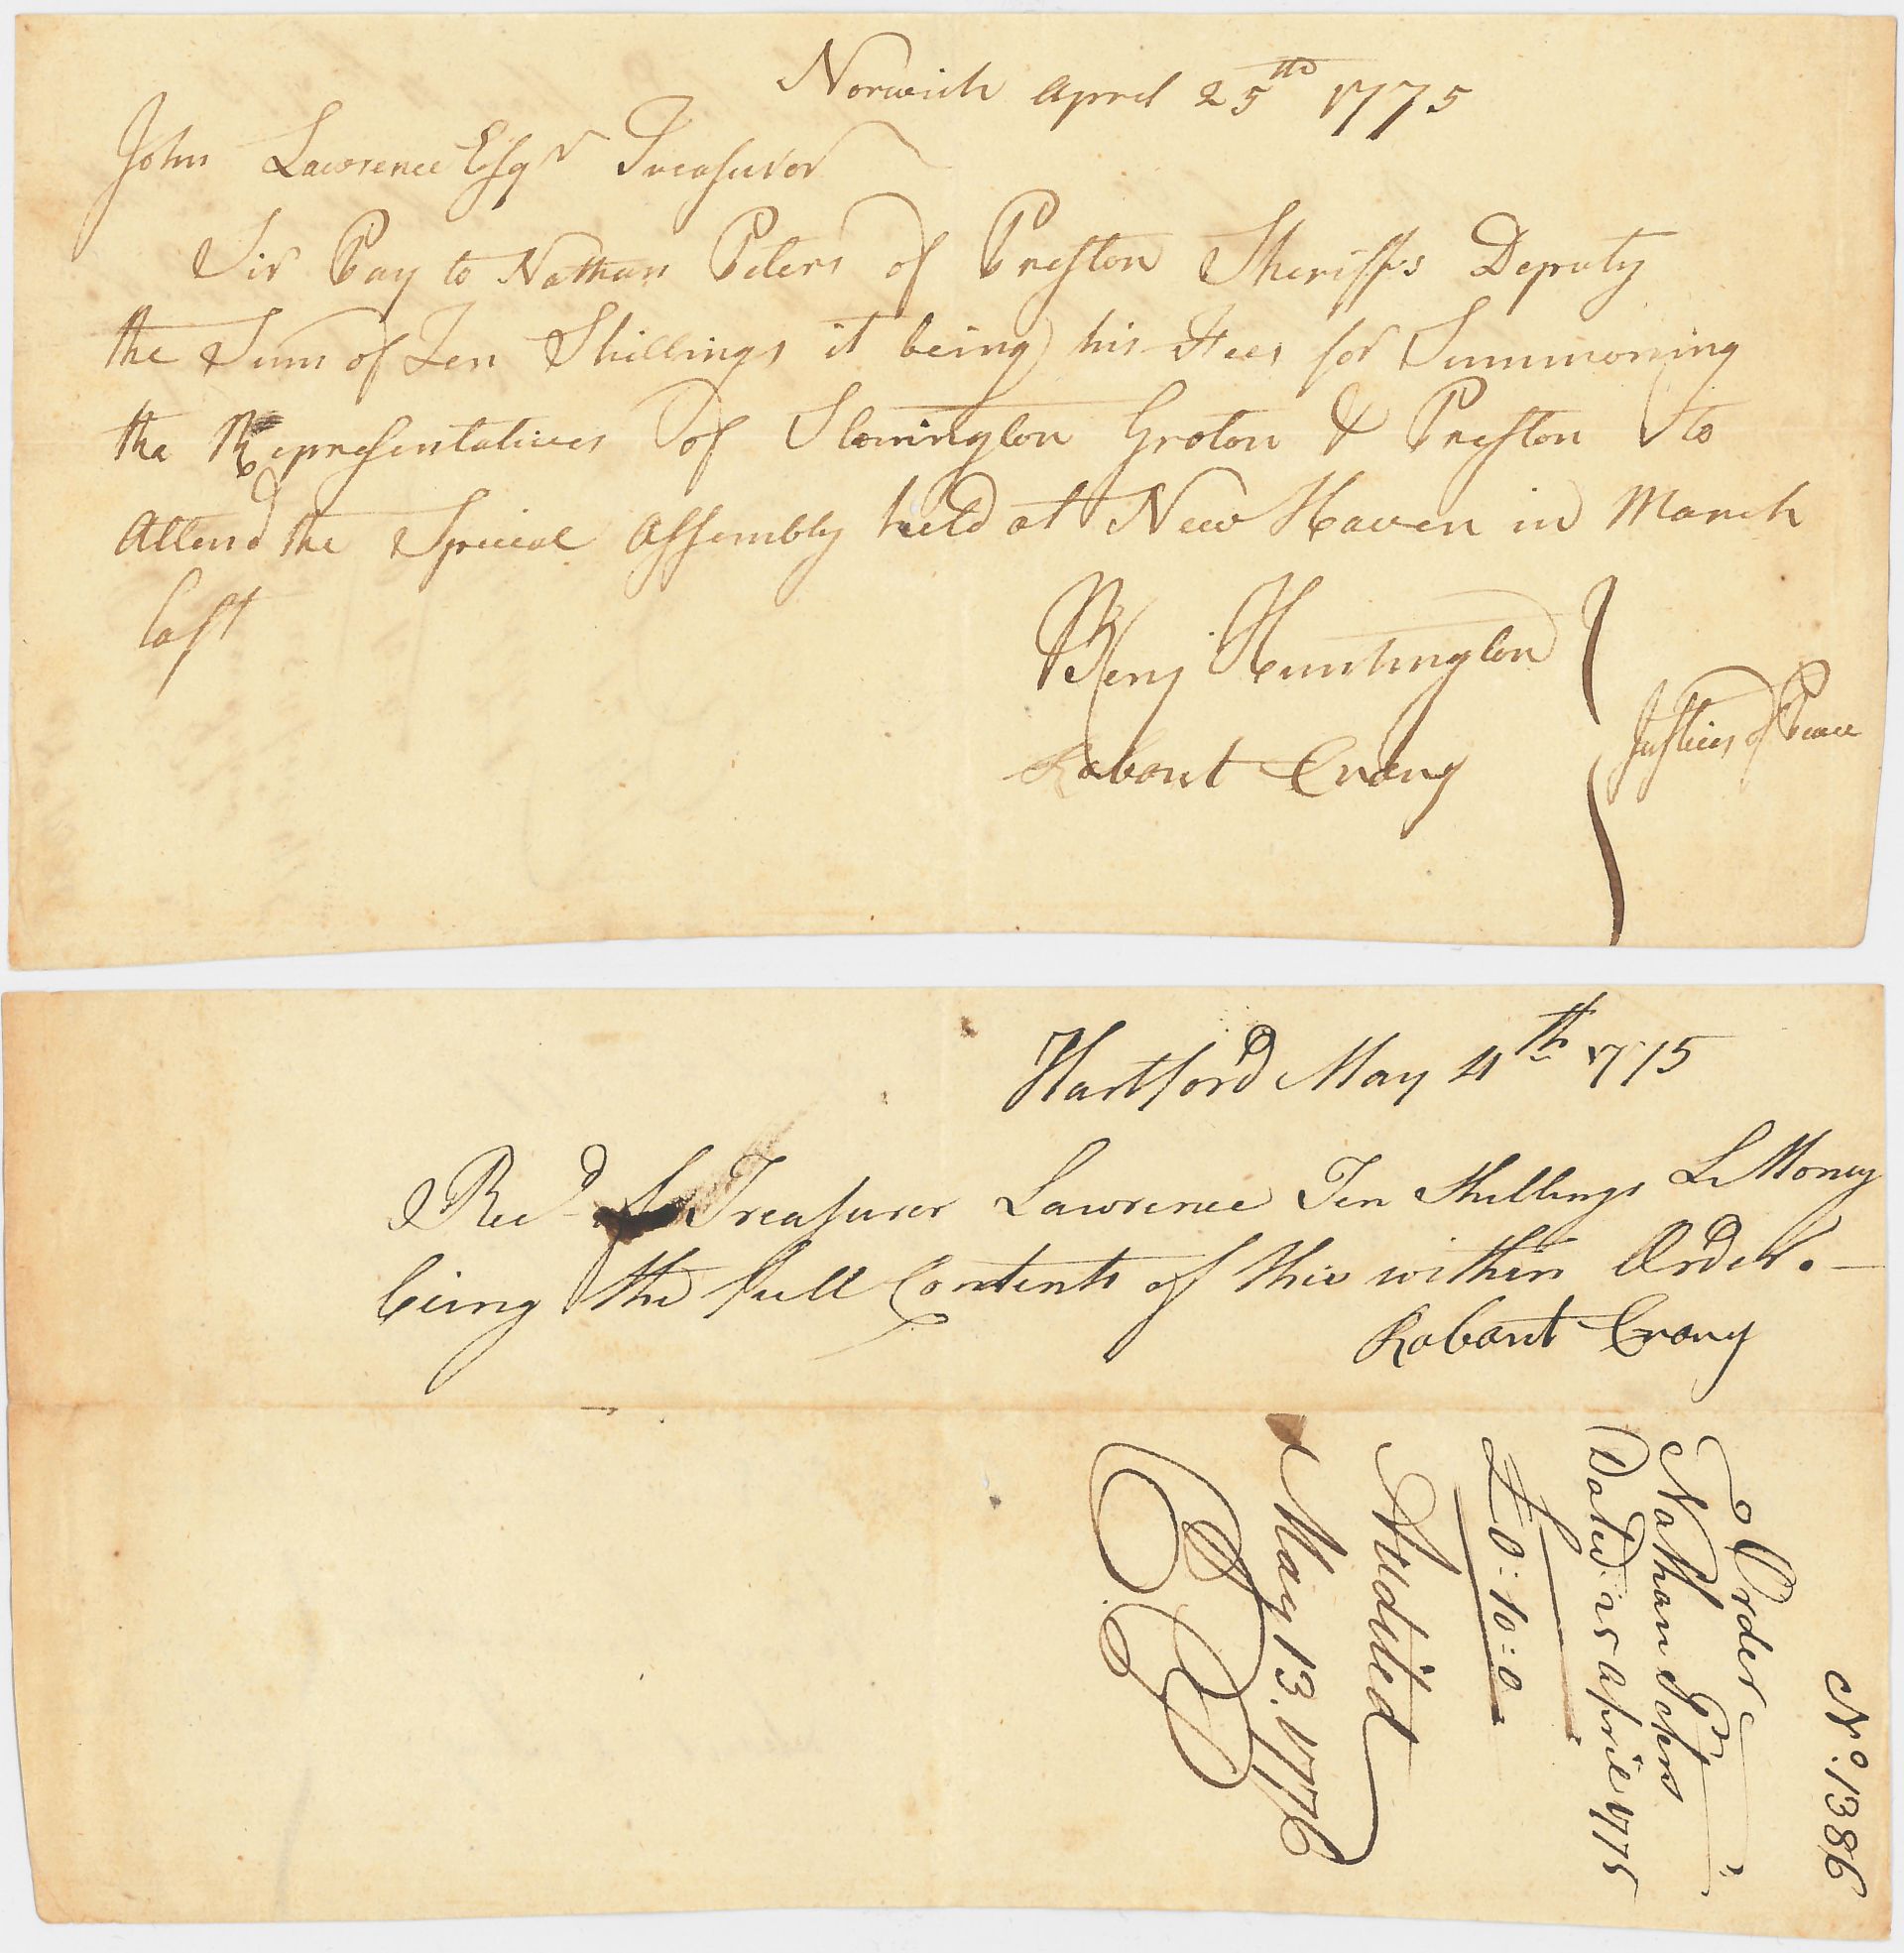 Norwich April 25th 1775
John Lawrence Esqr Treasuror
Sir Pay to Nathan Peters of Preston Sheriffs Deputy
the Sum of Ten Shillings it being his Fees for Summoning
the Representatives of Stonington Groton & Preston to
Attend the Special Assembly held at New Haven in March
last
Benj Huntington
Justices of Peace
Robart Crary
Hartford May 4th 1775
Recd of Treasurer Lawrence Ten Shillings L Money
being the full Contents of this within Order. —
Robart Crary
No. 1386
Order
Nathan Peters
Dated 25 April 1775
£0:10:0
Audited
May 13. 1776